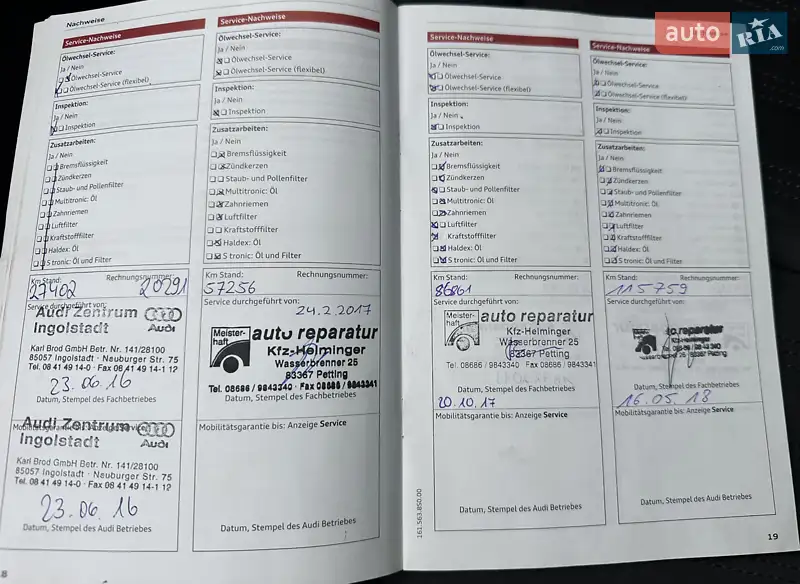 Nachweise
Service-Nachweise
Ölwechsel-Service:
Ja / Nein
Ölwechsel-Service
Ölwechsel-Service (flexibel)
Inspektion:
Ja / Nein
Inspektion
Zusatzarbeiten:
Ja / Nein
Bremsflüssigkeit
Zündkerzen
Staub- und Pollenfilter
Multitronic: Öl
Zahnriemen
Luftfilter
Kraftstofffilter
Haldex: Öl
S tronic: Öl und Filter
Km Stand: Rechnungsnummer:
27402 20291
Service durchgeführt von:
Audi Zentrum
Ingolstadt
Audi
Karl Brod GmbH Betr. Nr. 141/28100
85057 Ingolstadt · Neuburger Str. 75
Tel. 08 41 49 14-0 · Fax 08 41 49 14-1 12
23.06.16
Datum, Stempel des Fachbetriebes
Audi Zentrum
Ingolstadt
Audi
Karl Brod GmbH Betr. Nr. 141/28100
85057 Ingolstadt · Neuburger Str. 75
Tel. 08 41 49 14-0 · Fax 08 41 49 14-1 12
23.06.16
Datum, Stempel des Audi Betriebes
8
Service-Nachweise
Ölwechsel-Service:
Ja / Nein
Ölwechsel-Service
Ölwechsel-Service (flexibel)
Inspektion:
Ja / Nein
Inspektion
Zusatzarbeiten:
Ja / Nein
Bremsflüssigkeit
Zündkerzen
Staub- und Pollenfilter
Multitronic: Öl
Zahnriemen
Luftfilter
Kraftstofffilter
Haldex: Öl
S tronic: Öl und Filter
Km Stand: Rechnungsnummer:
57256
Service durchgeführt von:
24.2.2017
Meister-
haft
auto reparatur
Kfz-Helminger
Wasserbrenner 25
83367 Petting
Tel. 08686 / 9843340 · Fax 08686 / 9843341
Datum, Stempel des Fachbetriebes
Mobilitätsgarantie bis: Anzeige Service
Datum, Stempel des Audi Betriebes
Service-Nachweise
Ölwechsel-Service:
Ja / Nein
Ölwechsel-Service
Ölwechsel-Service (flexibel)
Inspektion:
Ja / Nein
Inspektion
Zusatzarbeiten:
Ja / Nein
Bremsflüssigkeit
Zündkerzen
Staub- und Pollenfilter
Multitronic: Öl
Zahnriemen
Luftfilter
Kraftstofffilter
Haldex: Öl
S tronic: Öl und Filter
Km Stand: Rechnungsnummer:
86861
Service durchgeführt von:
Meister-
haft
auto reparatur
Kfz-Helminger
Wasserbrenner 25
83367 Petting
Tel. 08686 / 9843340 · Fax 08686 / 9843341
Datum, Stempel des Fachbetriebes
20.10.17
Mobilitätsgarantie bis: Anzeige Service
Datum, Stempel des Audi Betriebes
161.563.850.00
Service-Nachweise
Ölwechsel-Service:
Ja / Nein
Ölwechsel-Service
Ölwechsel-Service (flexibel)
Inspektion:
Ja / Nein
Inspektion
Zusatzarbeiten:
Ja / Nein
Bremsflüssigkeit
Zündkerzen
Staub- und Pollenfilter
Multitronic: Öl
Zahnriemen
Luftfilter
Kraftstofffilter
Haldex: Öl
S tronic: Öl und Filter
Km Stand: Rechnungsnummer:
115759
Service durchgeführt von:
Datum, Stempel des Fachbetriebes
16.05.18
Mobilitätsgarantie bis: Anzeige Service
Datum, Stempel des Audi Betriebes
19
auto RIA .com